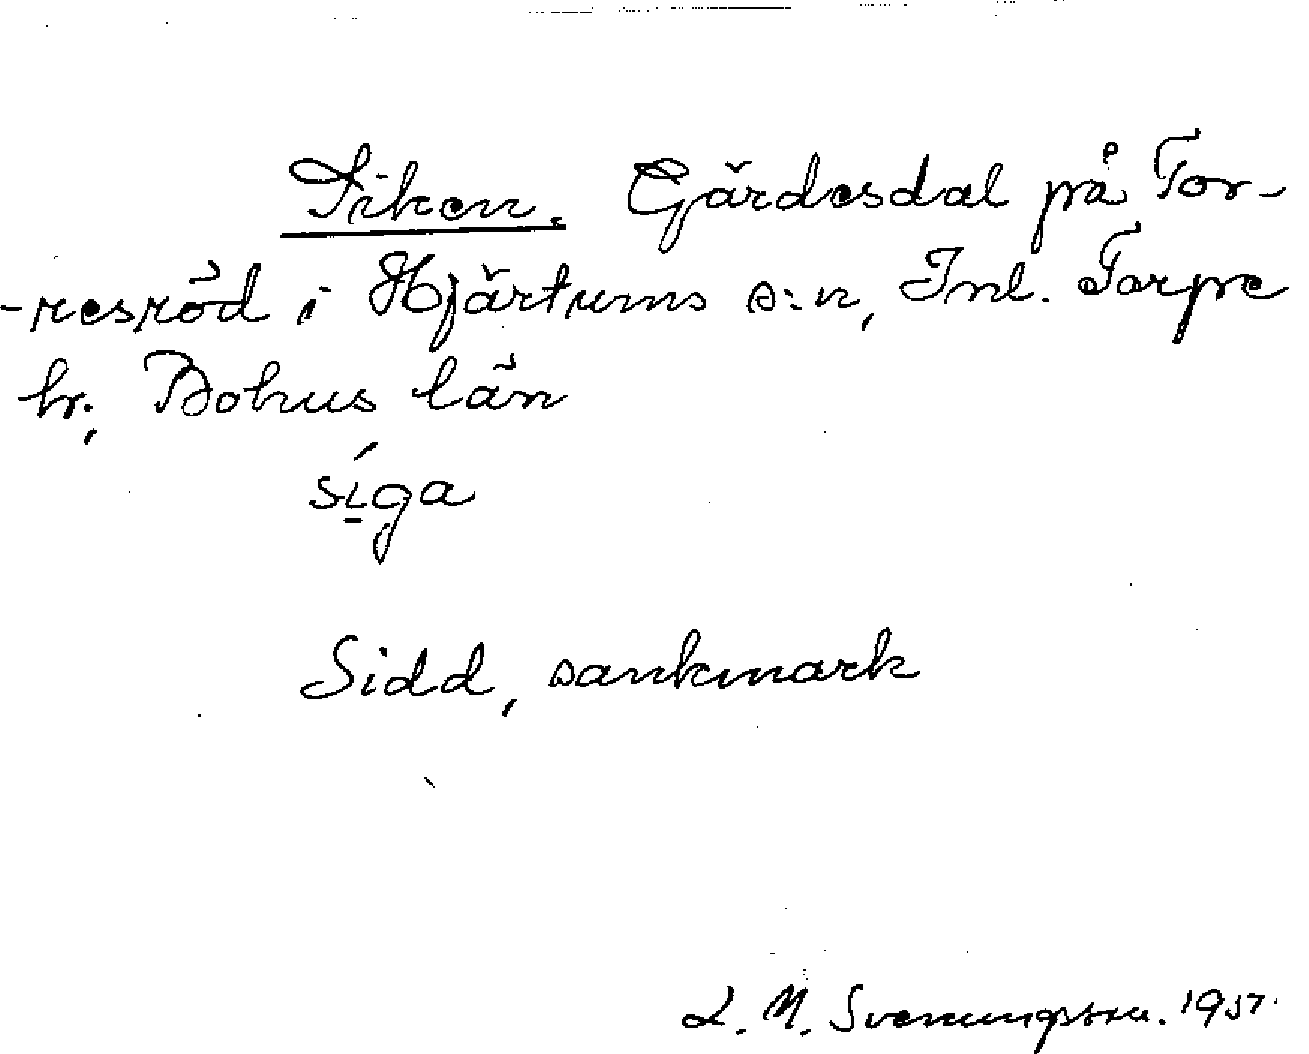 Siken. Gärdesdal på Tor-
-resröd i Hjärtums s:n, Inl. Torpe
hr, Bohus län
síga
Sidd, sankmark
L. M. Svenungsson. 1957.